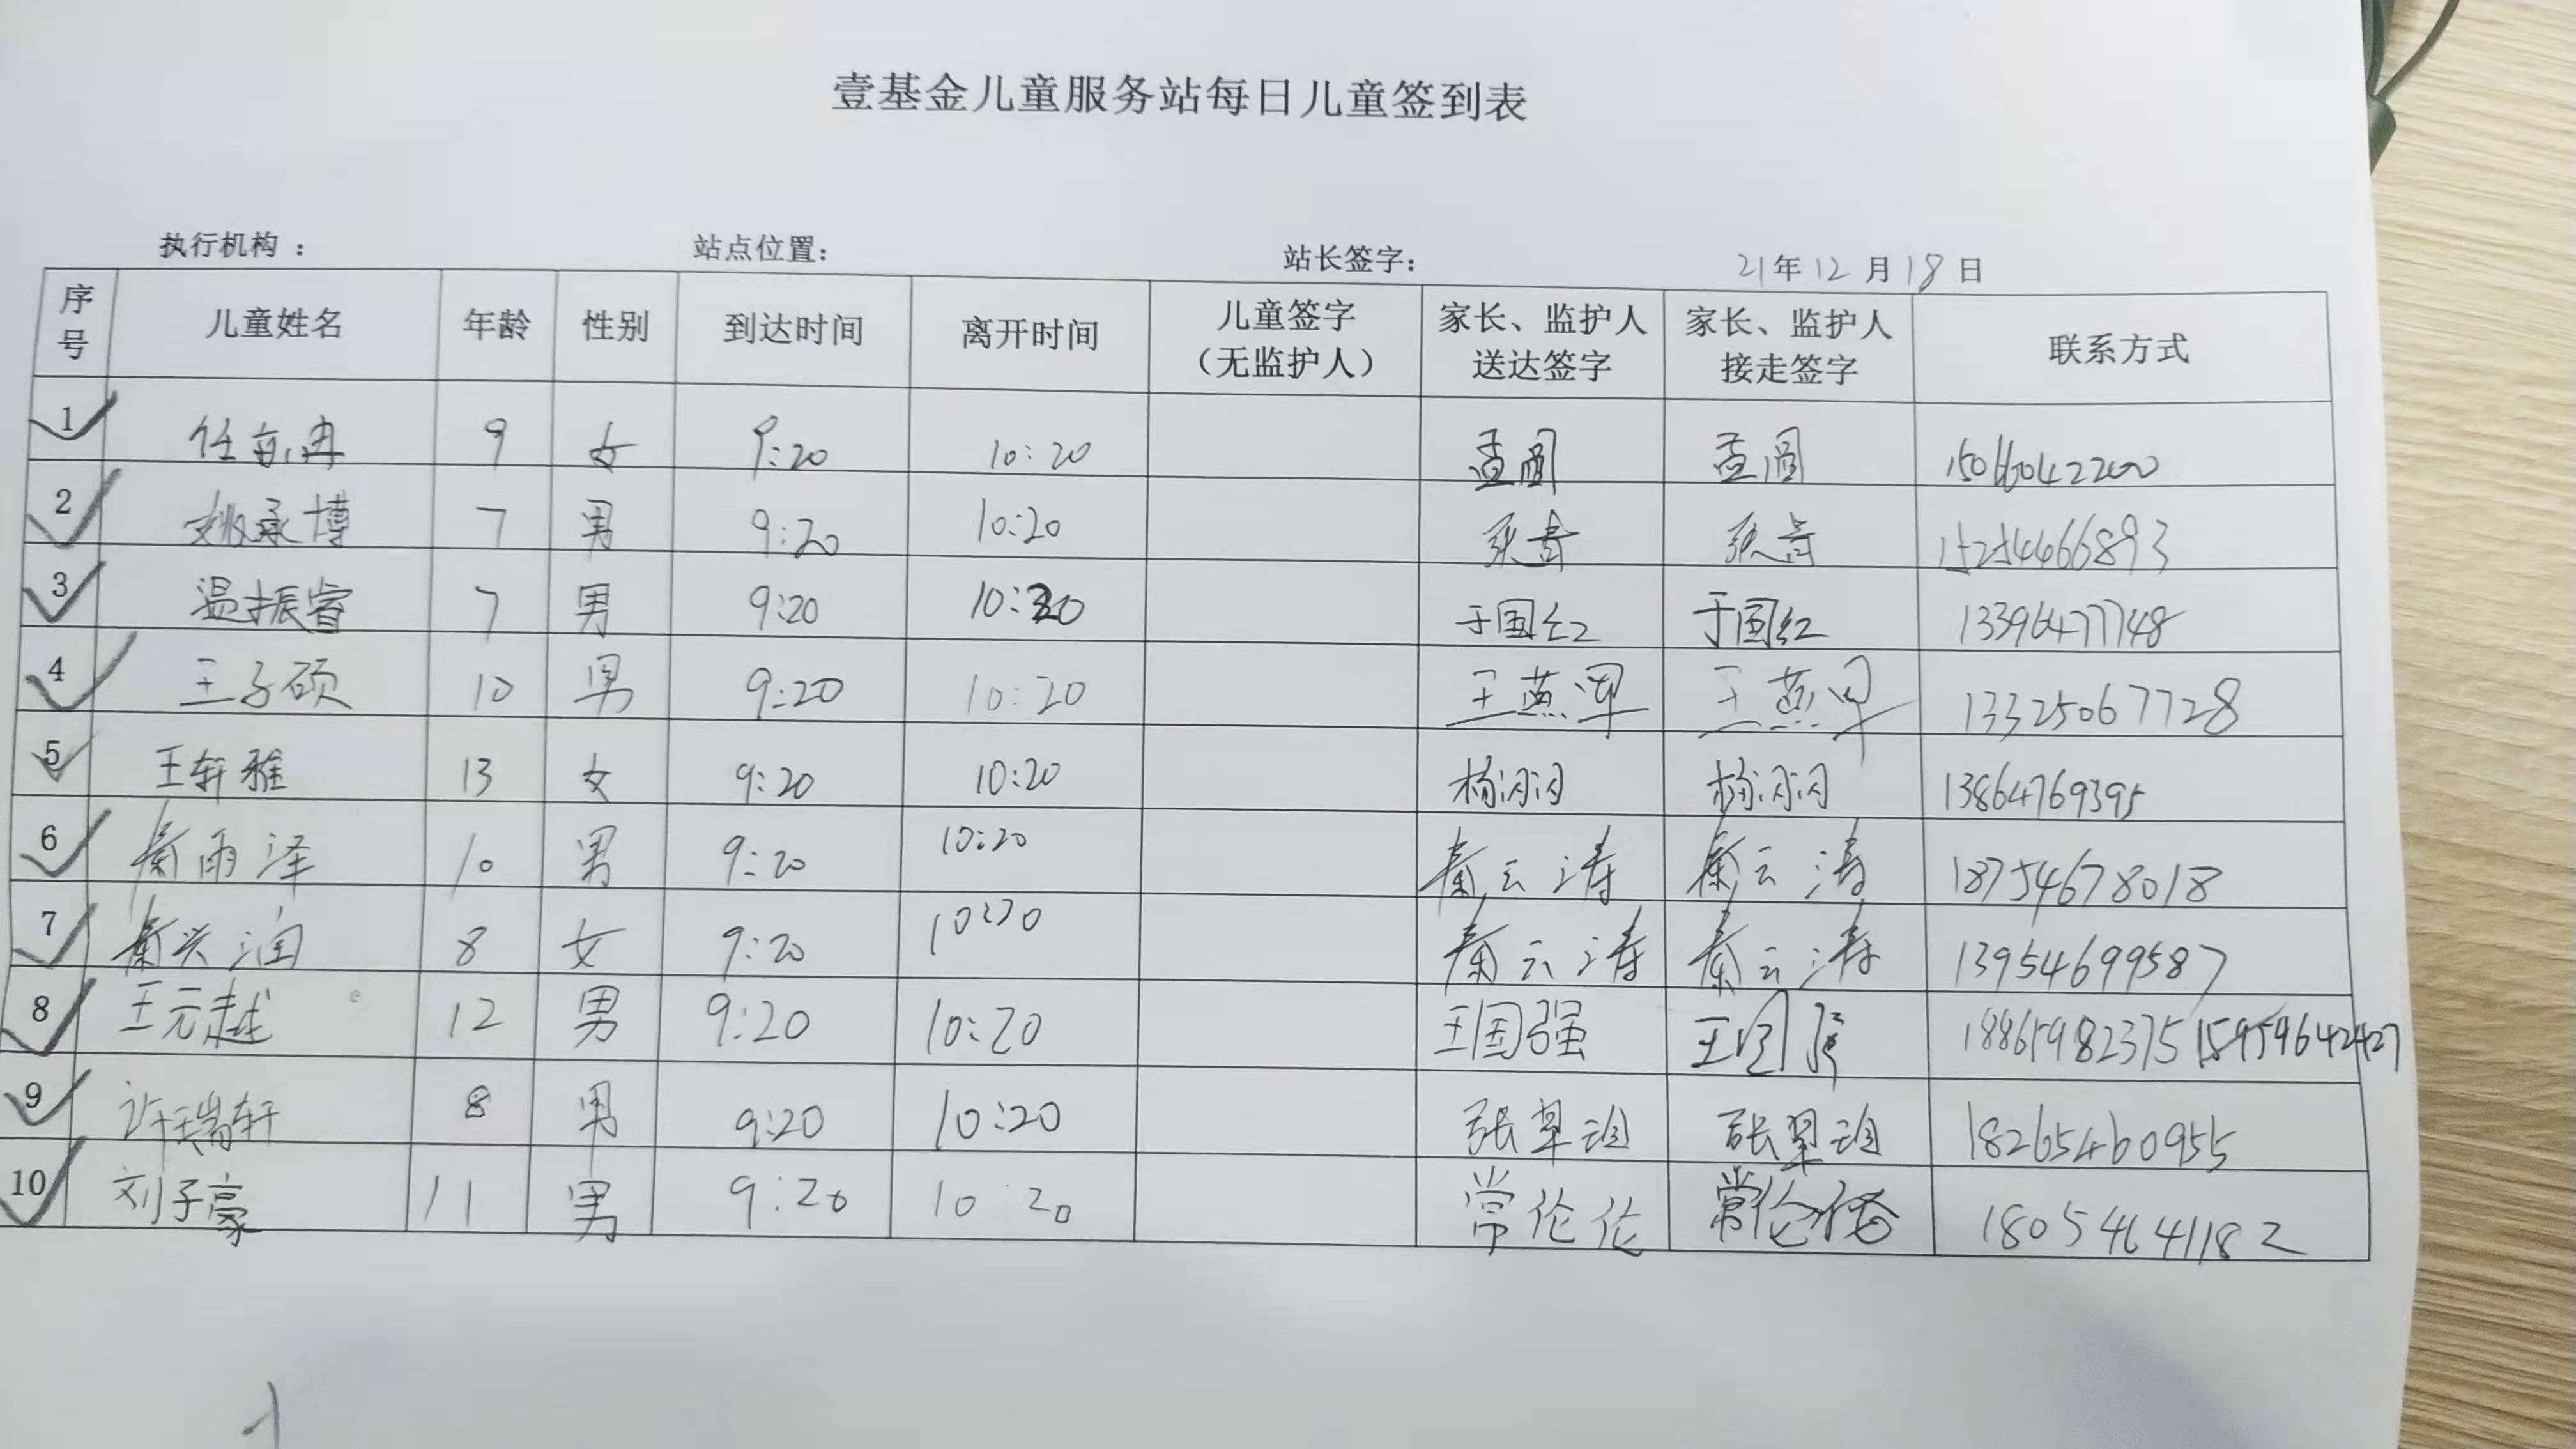 壹基金儿童服务站每日儿童签到表
执行机构： 站点位置： 站长签字： 21年12月18日
序号 儿童姓名 年龄 性别 到达时间 离开时间 儿童签字（无监护人） 家长、监护人送达签字 家长、监护人接走签字 联系方式
1 9 女 9:20 10:20 孟圆 孟圆 15066042200
2 姚承博 7 男 9:20 10:20 15254466893
3 温振睿 7 男 9:20 10:20 于国红 于国红 13396477748
4 王子硕 10 男 9:20 10:20 王燕军 王燕军 13325067728
5 王轩雅 13 女 9:20 10:20 杨闪闪 杨闪闪 13864769395
6 秦雨泽 10 男 9:20 10:20 秦云涛 秦云涛 18754678018
7 秦兴润 8 女 9:20 10:20 秦云涛 秦云涛 13954699587
8 王元越 12 男 9:20 10:20 王国强 王国强 18865982375
9 许瑞轩 8 男 9:20 10:20 18265460955
10 刘子豪 11 男 9:20 10:20 常伦伦 18054641182